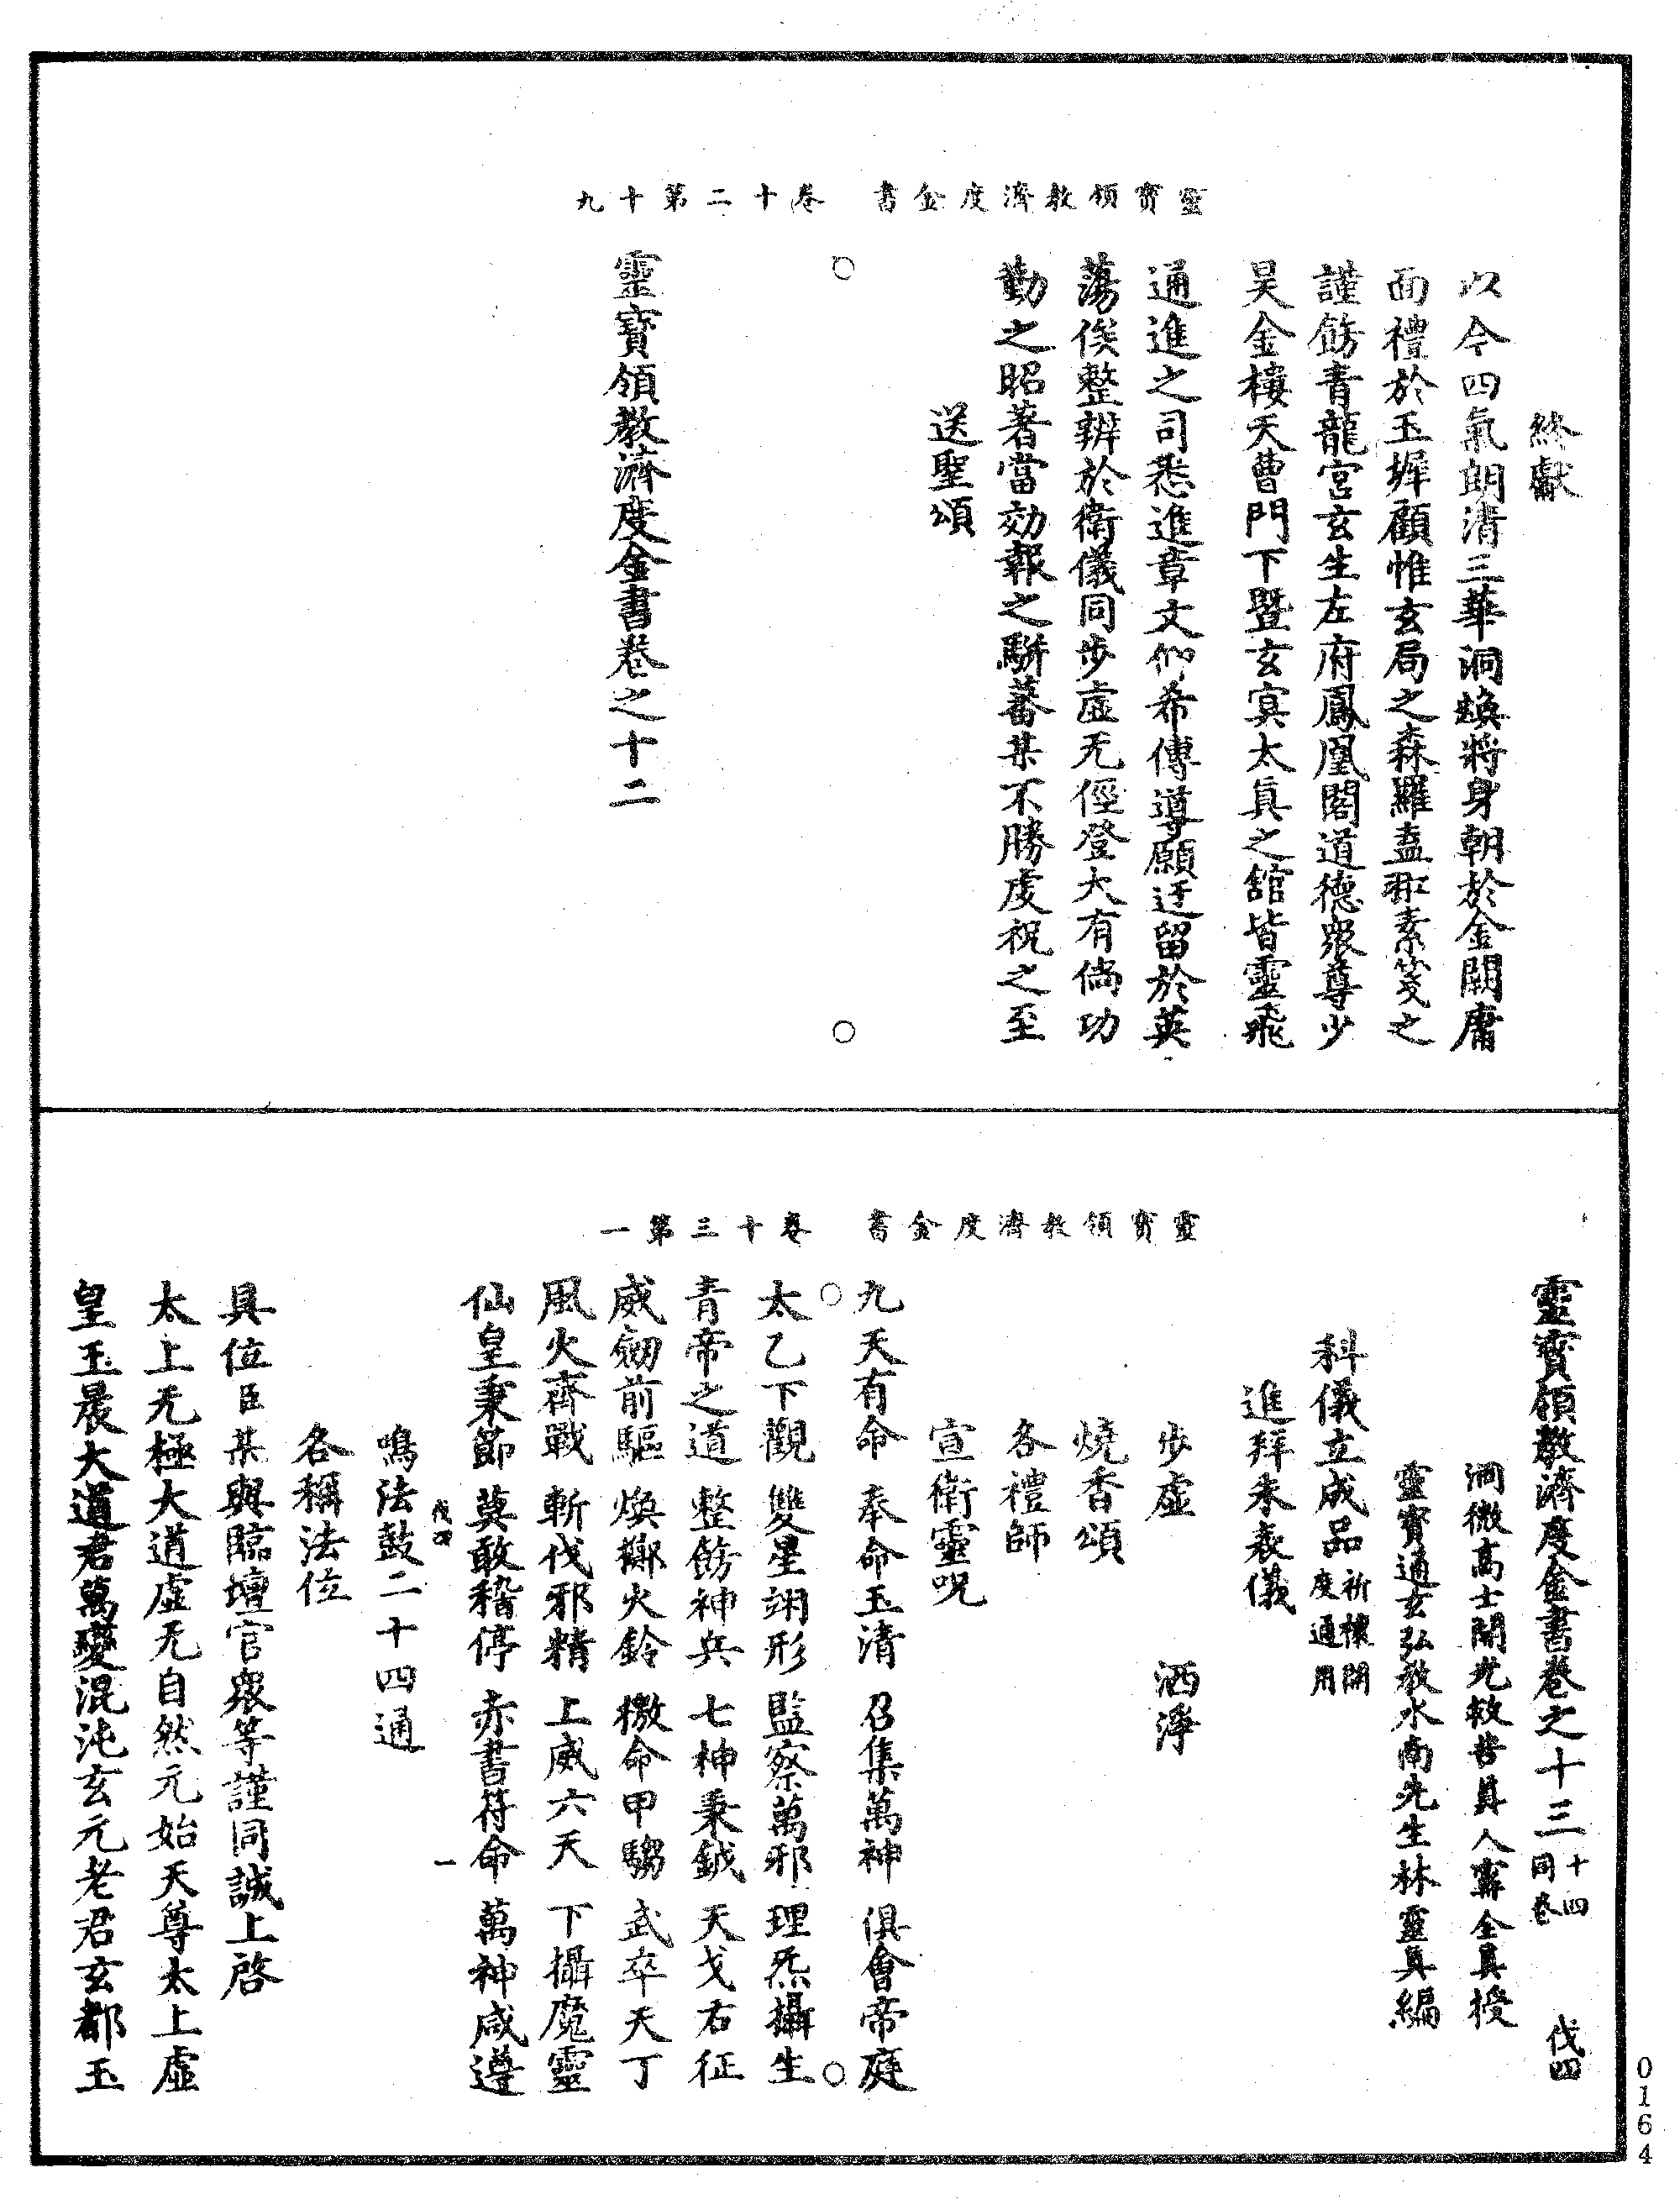 靈寶領教濟度金書　卷十二第十九
終獻
以今四氣朗清三華洞煥將身朝於金闕庸
面禮於玉墀顧惟玄局之森羅盍形素箋之
謹餝青龍宮玄生左府鳳凰閣道德眾尊少
昊金樓天曹門下暨玄冥太真之舘皆靈飛
通進之司悉進章文仰希傳導願迂留於英
蕩俟整辦於衛儀同步虛无徑登大有倘功
勤之昭著當効報之駢蕃某不勝虔祝之至
送聖頌
靈寶領教濟度金書卷之十二
靈寶領教濟度金書　卷十三第一
靈寶領教濟度金書卷之十三 十四同卷 伐四
洞微高士開光救苦真人寗全真授
靈寶通玄弘教水南先生林靈真編
科儀立成品 祈禳開度通用
進拜朱表儀
步虛　洒淨
燒香頌
各禮師
宣衛靈呪
九天有命　奉命玉清　召集萬神　俱會帝庭
太乙下觀　雙星翊形　監察萬邪　理炁攝生
青帝之道　整餝神兵　七神秉鉞　天戈右征
威劒前驅　煥擲火鈴　檄命甲騶　武卒天丁
風火齊戰　斬伐邪精　上威六天　下攝魔靈
仙皇秉節　莫敢稽停　赤書符命　萬神咸遵
伐四　一
鳴法鼓二十四通
各稱法位
具位臣某與臨壇官眾等謹同誠上啓
太上无極大道虛无自然元始天尊太上虛
皇玉晨大道君萬變混沌玄元老君玄都玉
0164